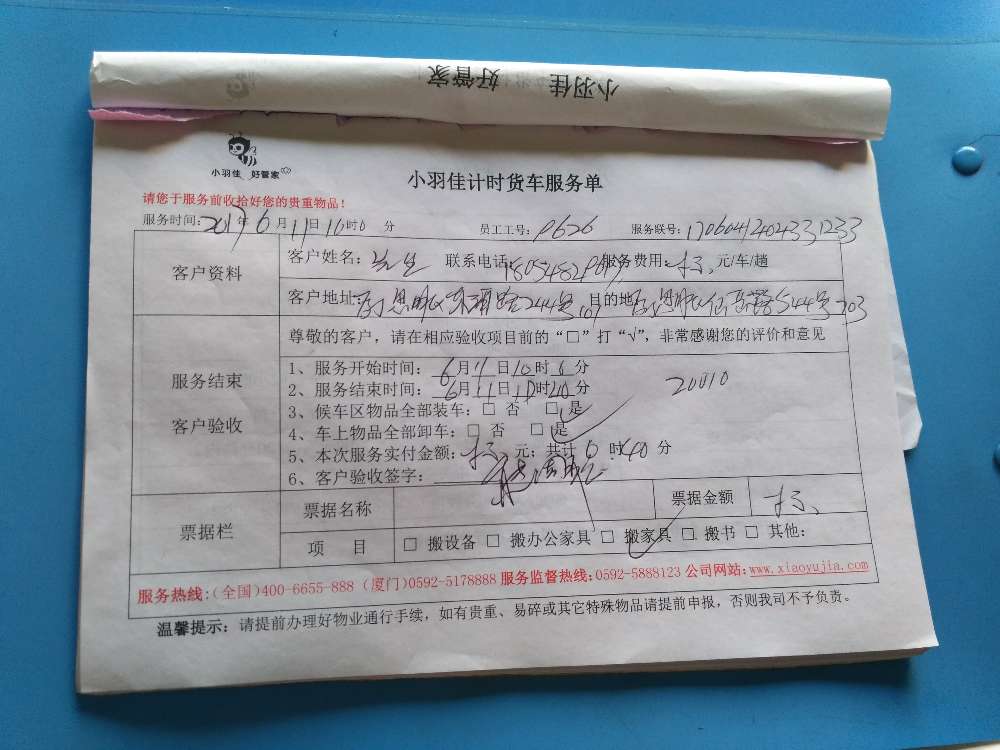 小羽佳 好管家
小羽佳 好管家
小羽佳计时货车服务单
请您于服务前收拾好您的贵重物品!
服务时间:2017年6月11日10时0分 员工工号:P626 服务联号:170604124024331233
客户资料
客户姓名: 联系电话: 服务费用: 元/车/趟
客户地址: 思明区 244号 目的地: 思明区 544号703
尊敬的客户,请在相应验收项目前的“□”打“√”,非常感谢您的评价和意见
服务结束
客户验收
1、服务开始时间:6月11日10时0分
2、服务结束时间:6月11日10时40分
20010
3、候车区物品全部装车:□ 否 □ 是
4、车上物品全部卸车:□ 否 □ 是
5、本次服务实付金额: 元;共计0时40分
6、客户验收签字:
票据栏
票据名称 票据金额
项 目 □ 搬设备 □ 搬办公家具 □ 搬家具 □ 搬书 □ 其他:
服务热线:(全国)400-6655-888 (厦门)0592-5178888 服务监督热线:0592-5888123 公司网站:www.xiaoyujia.com
温馨提示:请提前办理好物业通行手续,如有贵重、易碎或其它特殊物品请提前申报,否则我司不予负责。